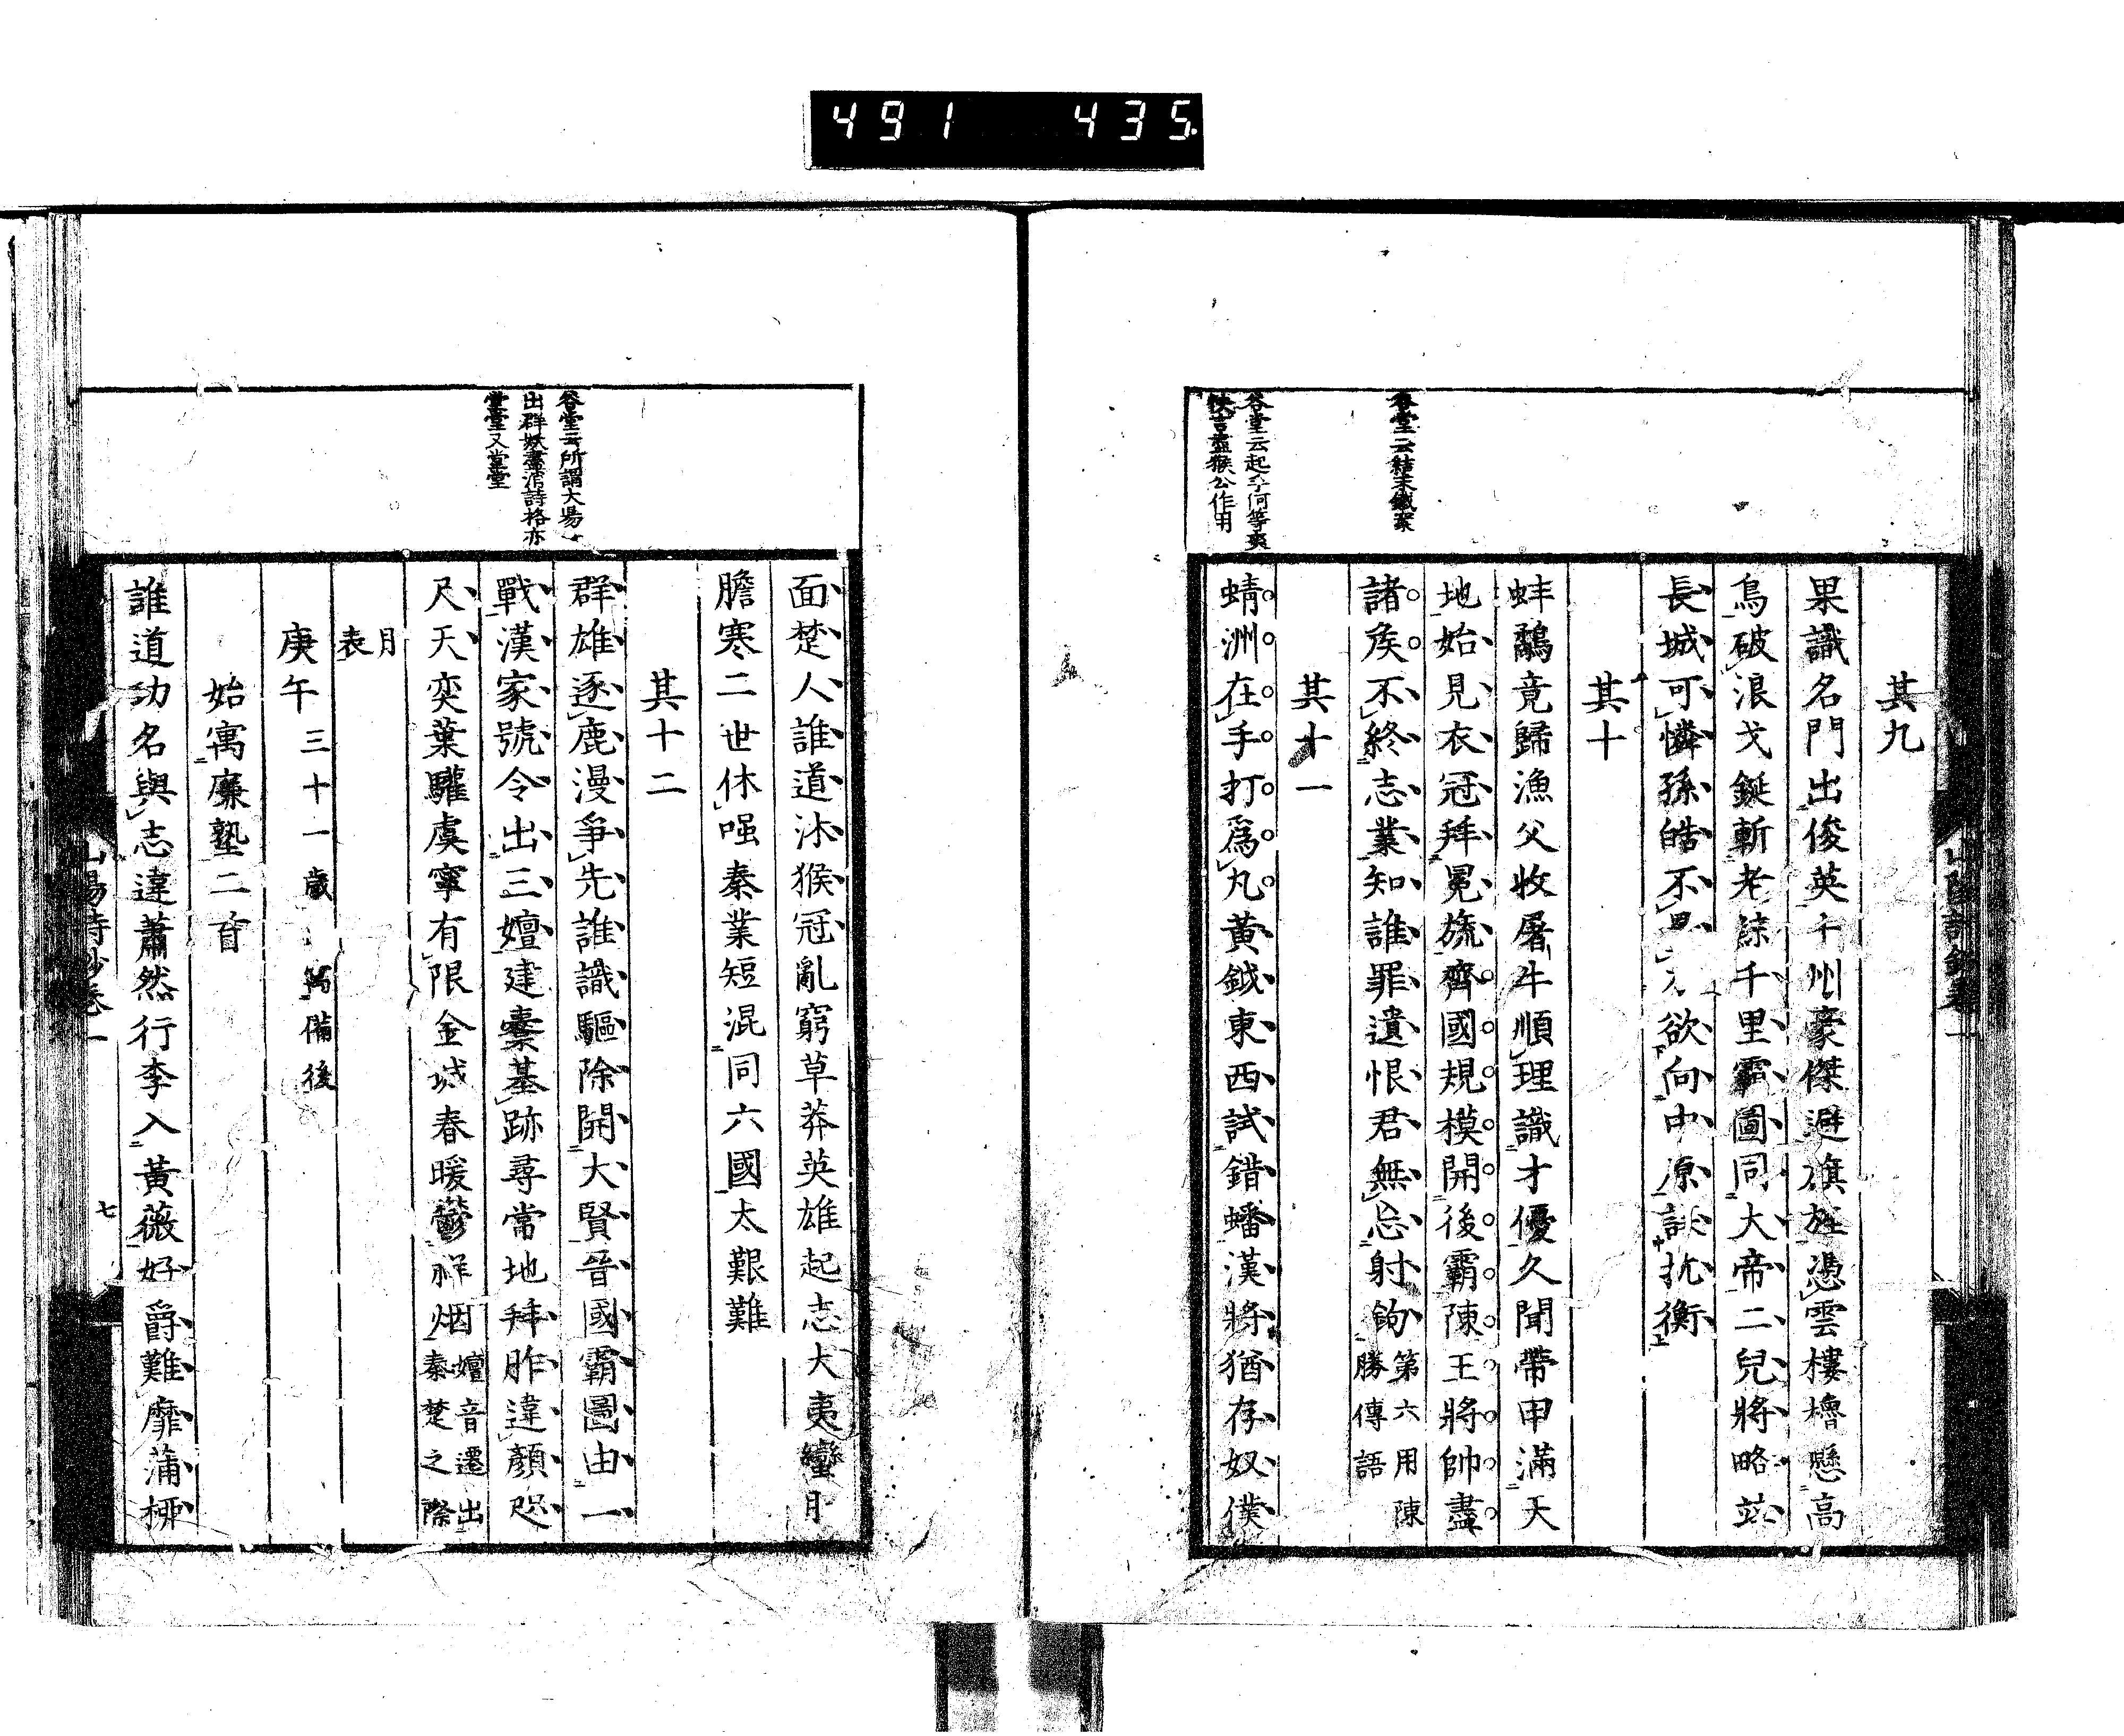 491 435
谷堂云結末鐵案
谷堂云起手何等爽
快言盡猴公作用
其九
果識名門出俊英千州豪傑避旗旌憑雲樓櫓懸高
鳥破浪戈鋋斬老鯨千里霸圖同大帝二兒將略竝
長城可憐孫皓不 欲向中原試抗衡
其十
蚌鷸竟歸漁父收屠牛順理識才優久聞帶甲滿天
地始見衣冠拜冕旒齊國規模開後霸陳王將帥盡
諸矦不終志業知誰罪遺恨君無忘射鉤 第六用陳
勝傳語
其十一
蜻洲在手打爲丸黃鉞東西試錯蟠漢將猶存奴僕
谷堂云所謂大陽一
出群妖盡消詩格亦
堂堂又堂堂
面楚人誰道沐猴冠亂窮草莽英雄起志大夷蠻肝
膽寒二世休嗤秦業短混同六國太艱難
其十二
群雄逐鹿漫爭先誰識驅除開大賢晉國霸圖由一
戰漢家號令出三嬗建櫜基跡尋當地拜胙違顏咫
尺天奕葉驩虞寧有限金城春暖鬱祥烟 嬗音遷出
秦楚之際
月
表
庚午 三十一歲 寓備後
始寓廉塾二首
誰道功名與志違蕭然行李入黃薇好爵難靡蒲柳
山陽詩鈔卷一 七